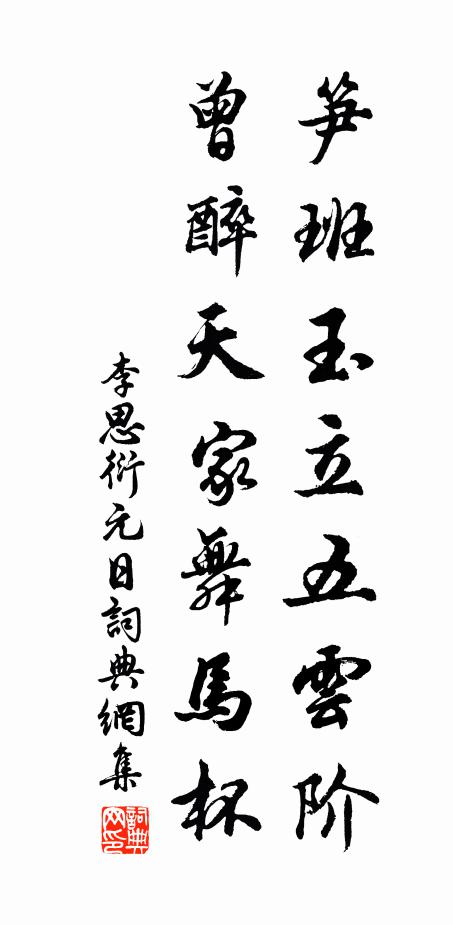 笋班玉立五雲阶
曾醉天家舞馬杯
李思衍元日詞典網集
詞典网印